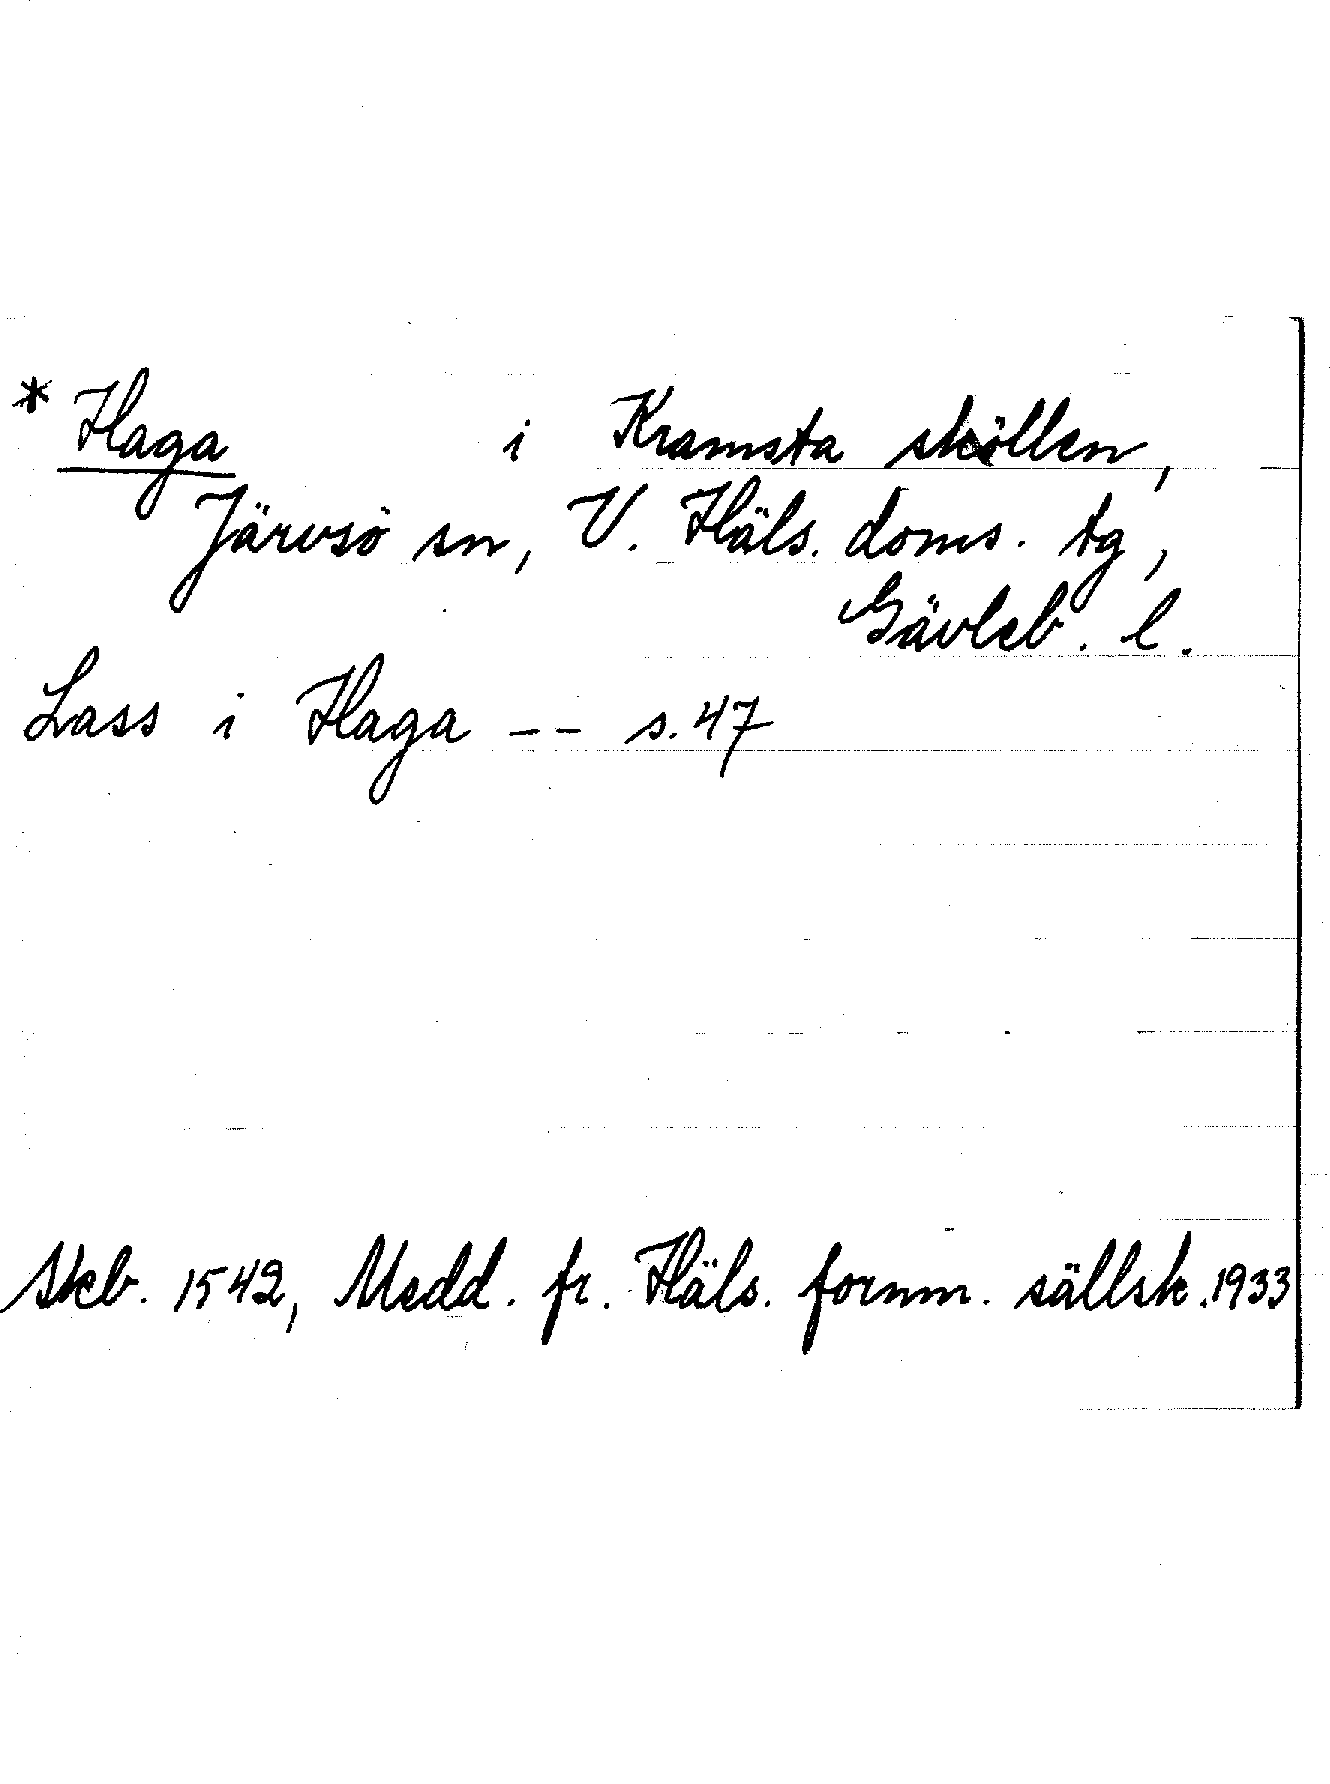 * Haga i Kramsta sköllen,
Järvsö sn, V. Häls. doms. tg,
Gävleb. l.
Lass i Haga -- s. 47
Skb. 1542, Medd. fr. Häls. fornm. sällsk. 1933